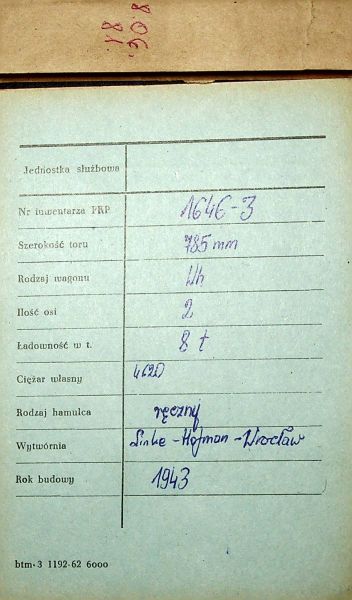 8.
.30.
18
Jednostka służbowa
Nr inwentarza PKP 1646-3
Szerokość toru 785 mm
Rodzaj wagonu Wh
Ilość osi 2
Ładowność w t. 8 t
Ciężar własny 4620
Rodzaj hamulca ręczny
Wytwórnia Linke-Hofman-Wrocław
Rok budowy 1943
btm-3 1192-62 6000